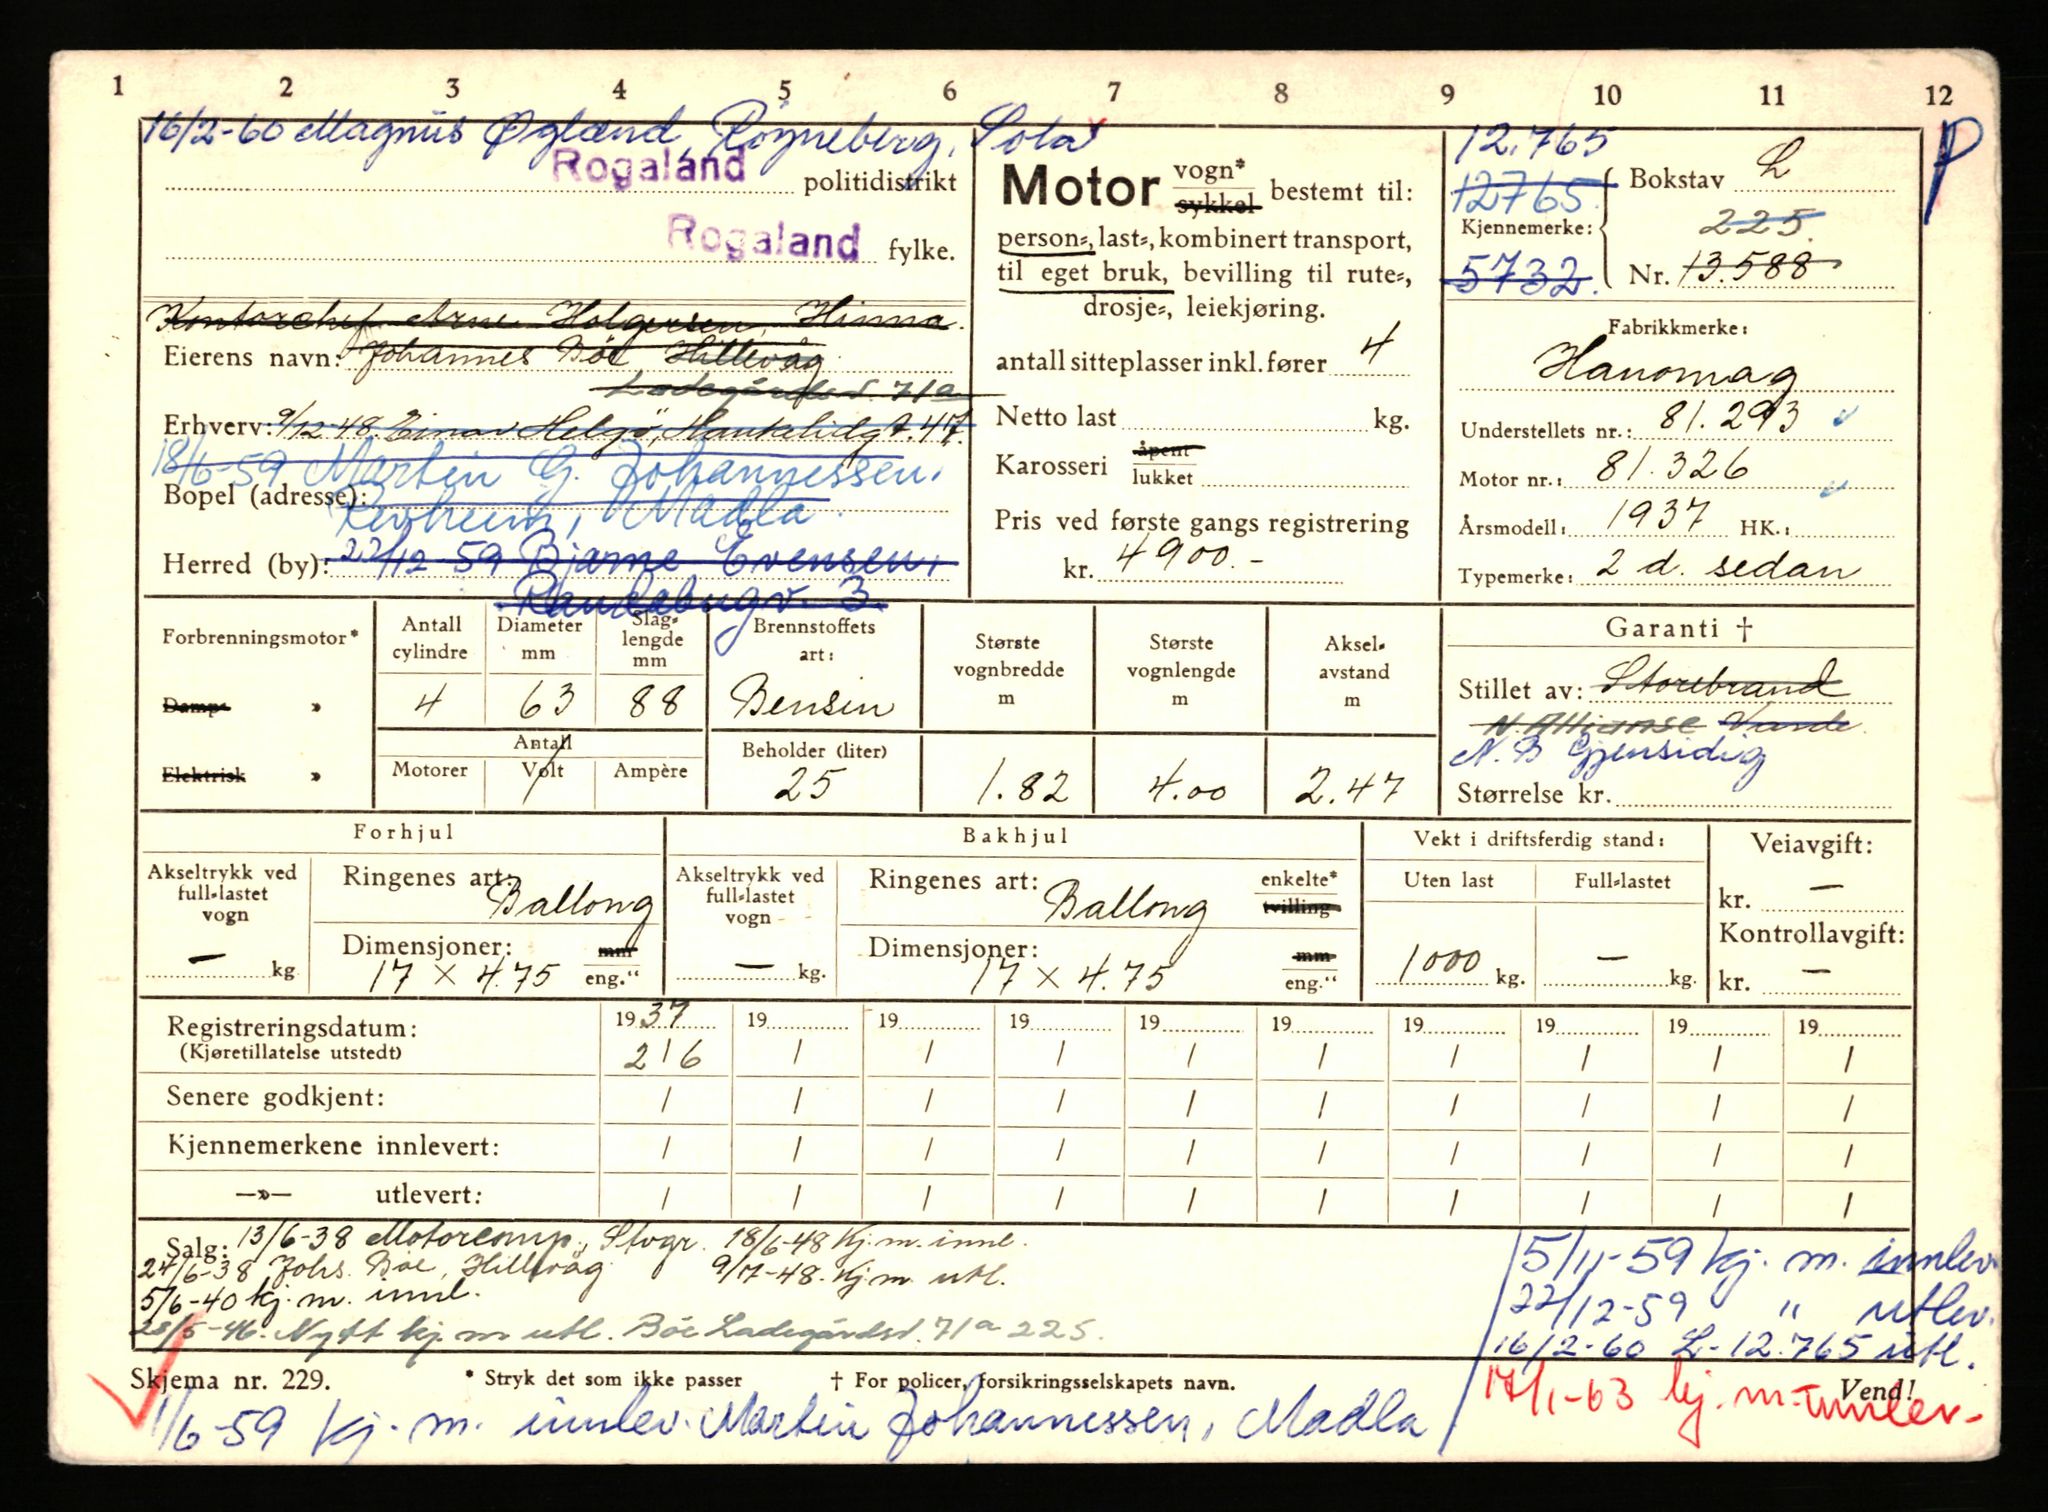 1 2 3 4 5 6 7 8 9 10 11 12
16/2-60 Magnus Øglænd, Røyneberg, Sola
P
Rogaland politidistrikt
Rogaland fylke.
Kontorchef Arne Holgersen, Hinna.
Eierens navn: Johannes Böe Hillevåg
Ladegårdsv. 71a
Erhverv: 9/12-48 Einar Helgö, Haukelidgt. 47.
18/6-59 Martin G. Johannessen,
Bopel (adresse):
Revheim, Madla.
Herred (by): 22/12 59 Bjarne Evensen,
Randabergv. 3.
Motor vogn* sykkel bestemt til:
person-, last-, kombinert transport,
til eget bruk, bevilling til rute-,
drosje-, leiekjøring.
antall sitteplasser inkl. fører 4
Netto last kg.
Karosseri åpent lukket
Pris ved første gangs registrering
kr. 4900.-
12.765
12765.
Kjennemerke:
5732.
Bokstav L
225.
Nr. 13.588
Fabrikkmerke:
Hanomag
Understellets nr.: 81.293
Motor nr.: 81.326
Årsmodell: 1937 HK.:
Typemerke: 2 d. sedan
Forbrenningsmotor*
Damp- »
Elektrisk »
Antall cylindre
4
Diameter mm
63
Slag-lengde mm
88
Antall
Motorer Volt Ampère
Brennstoffets art:
Bensin
Beholder (liter)
25
Største vognbredde m
1.82
Største vognlengde m
4.00
Aksel-avstand m
2.47
Garanti †
Stillet av: Storebrand
N. Allianse Varde.
N. B Gjensidig
Størrelse kr.
Forhjul
Akseltrykk ved full-lastet vogn
— kg
Ringenes art: Ballong
Dimensjoner: mm
17 × 4.75 eng."
Bakhjul
Akseltrykk ved full-lastet vogn
— kg.
Ringenes art: Ballong enkelte* tvilling
Dimensjoner: mm
17 × 4.75 eng."
Vekt i driftsferdig stand:
Uten last Full-lastet
1000 kg. — kg.
Veiavgift:
kr. —
Kontrollavgift:
kr. —
Registreringsdatum: 1937 19 19 19 19 19 19 19 19 19
(Kjøretillatelse utstedt) 2/6 / / / / / / / / /
Senere godkjent: / / / / / / / / / /
Kjennemerkene innlevert: / / / / / / / / / /
—»— utlevert: / / / / / / / / / /
Salg: 13/6-38 Motorcomp., Stvgr. 18/6-48 Kj. m. innl.
24/6-38 Johs. Böe, Hillevåg 9/7-48. Kj. m. utl.
5/6-40 kj. m. innl.
28/5-46. Nytt kj. m utl. Böe Ladegårdsv. 71a 225.
5/11-59 kj. m. innlev.
22/12-59 " utlev.
16/2-60 L-12.765 utl.
17/1-63 kj. m. innlev.
Skjema nr. 229. * Stryk det som ikke passer † For policer, forsikringsselskapets navn. Vend!
1/6-59 kj. m. innlev. Martin Johannessen, Madla